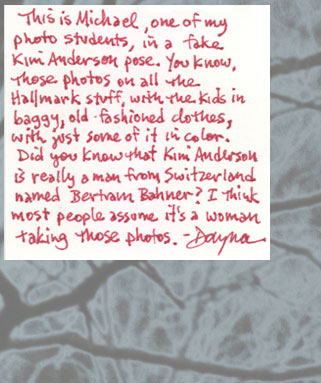 This is Michael, one of my
photo students, in a fake
Kim Anderson pose. You know,
those photos on all the
Hallmark stuff, with the kids in
baggy, old-fashioned clothes,
with just some of it in color.
Did you know that Kim Anderson
is really a man from Switzerland
named Bertram Bahner? I think
most people assume it's a woman
taking those photos. -Dayna